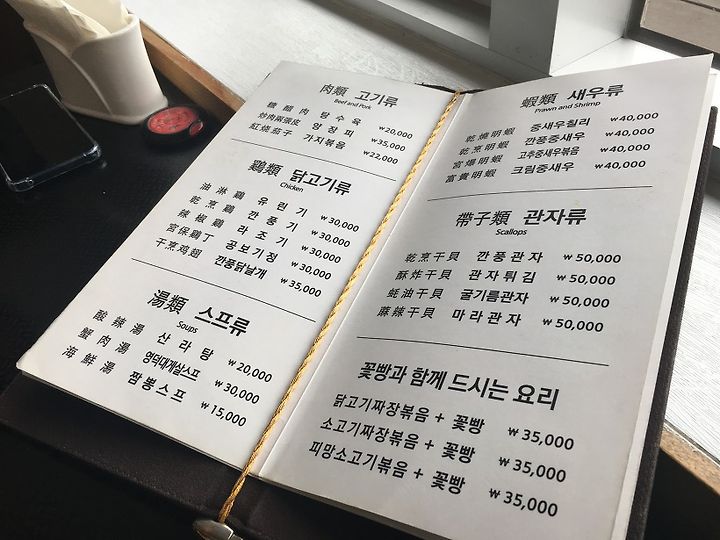 肉類 고기류
Beef and Pork
糖醋肉 탕수육 ₩20,000
炒肉兩張皮 양장피 ₩35,000
紅燒茄子 가지볶음 ₩22,000
鷄類 닭고기류
Chicken
油淋鷄 유린기 ₩30,000
乾烹鷄 깐풍기 ₩30,000
辣椒鷄 라조기 ₩30,000
宮保鷄丁 공보기정 ₩30,000
干烹鸡翅 깐풍닭날개 ₩35,000
湯類 스프류
Soups
酸辣湯 산라탕 ₩20,000
蟹肉湯 영덕대게살스프 ₩30,000
海鮮湯 짬뽕스프 ₩15,000
蝦類 새우류
Prawn and Shrimp
乾燒明蝦 중새우칠리 ₩40,000
乾烹明蝦 깐풍중새우 ₩40,000
宮爆明蝦 고추중새우볶음 ₩40,000
富貴明蝦 크림중새우 ₩40,000
帶子類 관자류
Scallops
乾烹干貝 깐풍관자 ₩50,000
酥炸干貝 관자튀김 ₩50,000
蚝油干貝 굴기름관자 ₩50,000
蔴辣干貝 마라관자 ₩50,000
꽃빵과 함께 드시는 요리
닭고기짜장볶음 + 꽃빵 ₩35,000
소고기짜장볶음 + 꽃빵 ₩35,000
피망소고기볶음 + 꽃빵 ₩35,000